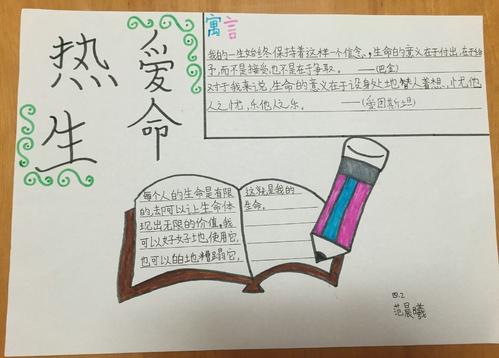 热爱
生命
寓言
我的一生始终保持着这样一个信念,生命的意义在于付出,在于给
予,而不是接受,也不是在于争取。——(巴金)
对于我来说,生命的意义在于设身处地替人着想,忧他
人之忧,乐他人之乐。——(爱因斯坦)
每个人的生命是有限
的,却可以让生命体
现出无限的价值。我
可以好好地使用它,
也可以白白地糟蹋它,
这就是我的
生命。
四.2
范晨曦